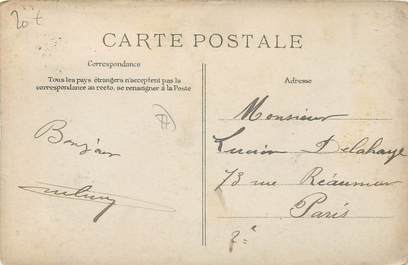 20 t
CARTE POSTALE
Correspondance
Tous les pays étrangers n'acceptent pas la
correspondance au recto, se renseigner à la Poste
Adresse
Bonjour
Monsieur
Lucien Delahaye
73 rue Réaumur
Paris
2e